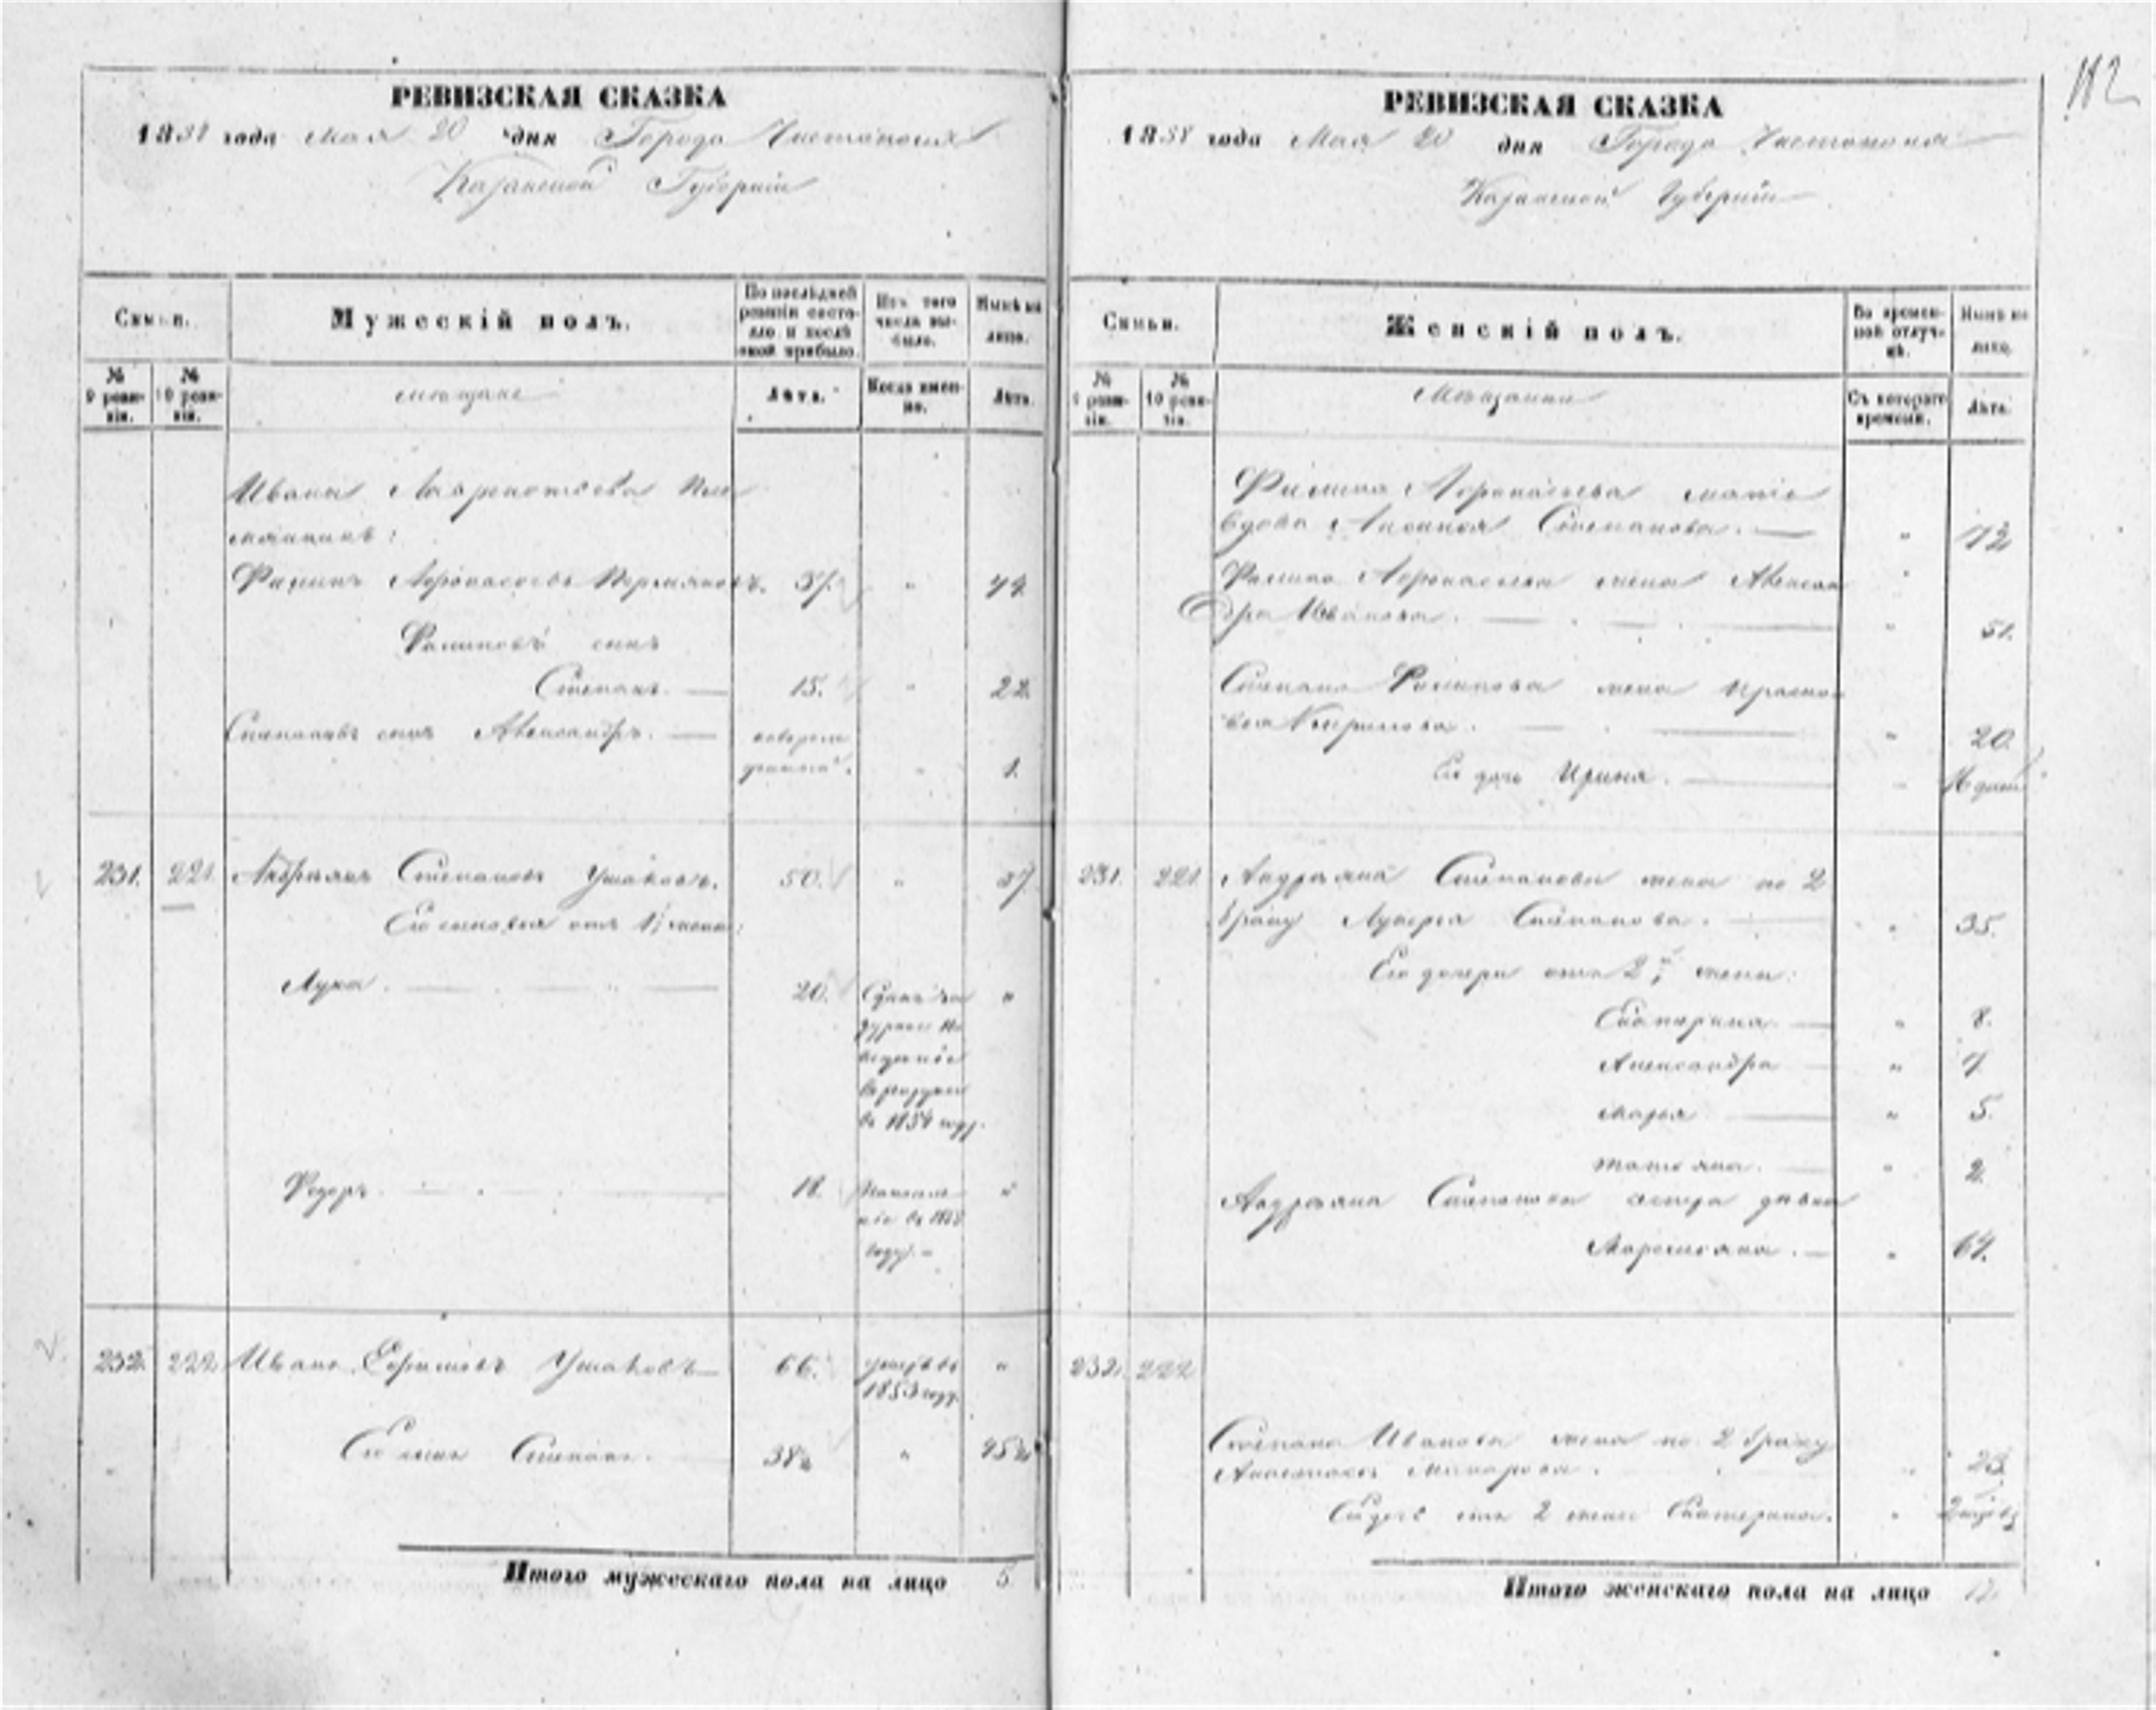 РЕВИЗСКАЯ СКАЗКА
1858 года Мая 20 дня Города Чистополя
Казанской Губернiи
Семьи.
Мужескiй полъ.
По послѣдней ревизiи состояло и послѣ оной прибыло.
Изъ того числа выбыло.
Нынѣ на лицо.
№ 9 ревизiи.
№ 10 ревизiи.
мѣщане
Лѣта.
Когда именно.
Лѣта.
Ивана Лаврентьева
Филипъ Афонасьевъ 37. " 44.
Филиповъ сынъ
Степанъ. 15. " 22.
Степановъ сынъ Александръ.
" 1.
231. 221. Степановъ Ушаковъ. 50. " 57.
Его сыновья отъ 1й жены:
Лука. 20. "
въ рекруты
въ 1854 году.
Федоръ 18. "
году.
232. 222. Иванъ Ефимовъ Ушаковъ 66. "
1853 году.
Его сынъ Степанъ. 38½ " 45½
Итого мужескаго пола на лицо 5.
112
РЕВИЗСКАЯ СКАЗКА
1858 года Мая 20 дня Города Чистополя
Казанской Губернiи
Семьи.
Женскiй полъ.
Во временной отлучкѣ.
Нынѣ на лицо.
№ 9 ревизiи.
№ 10 ревизiи.
Мѣщанки
Съ котораго времени.
Лѣта.
Филипа Афонасьева мать
вдова Степанова. " 72.
Филипа Афонасьева жена Алексан
дра Иванова. " 51.
Степана Филипова жена Праско
вья Кирилова. " 20.
Ея дочь Ирина.
231. 221. Андрияна Степанова жена по 2
браку Лукерья Степанова. " 35.
Его дочери отъ 2й жены:
Екатерина " 8.
Александра " 7.
Марья " 5.
Татьяна. " 2.
Андрияна Степанова сестра дѣвка
" 64.
232. 222
Степана Иванова жена по 2 браку
Макарова. " 23.
отъ 2 жены Екатерина. "
Итого женскаго пола на лицо